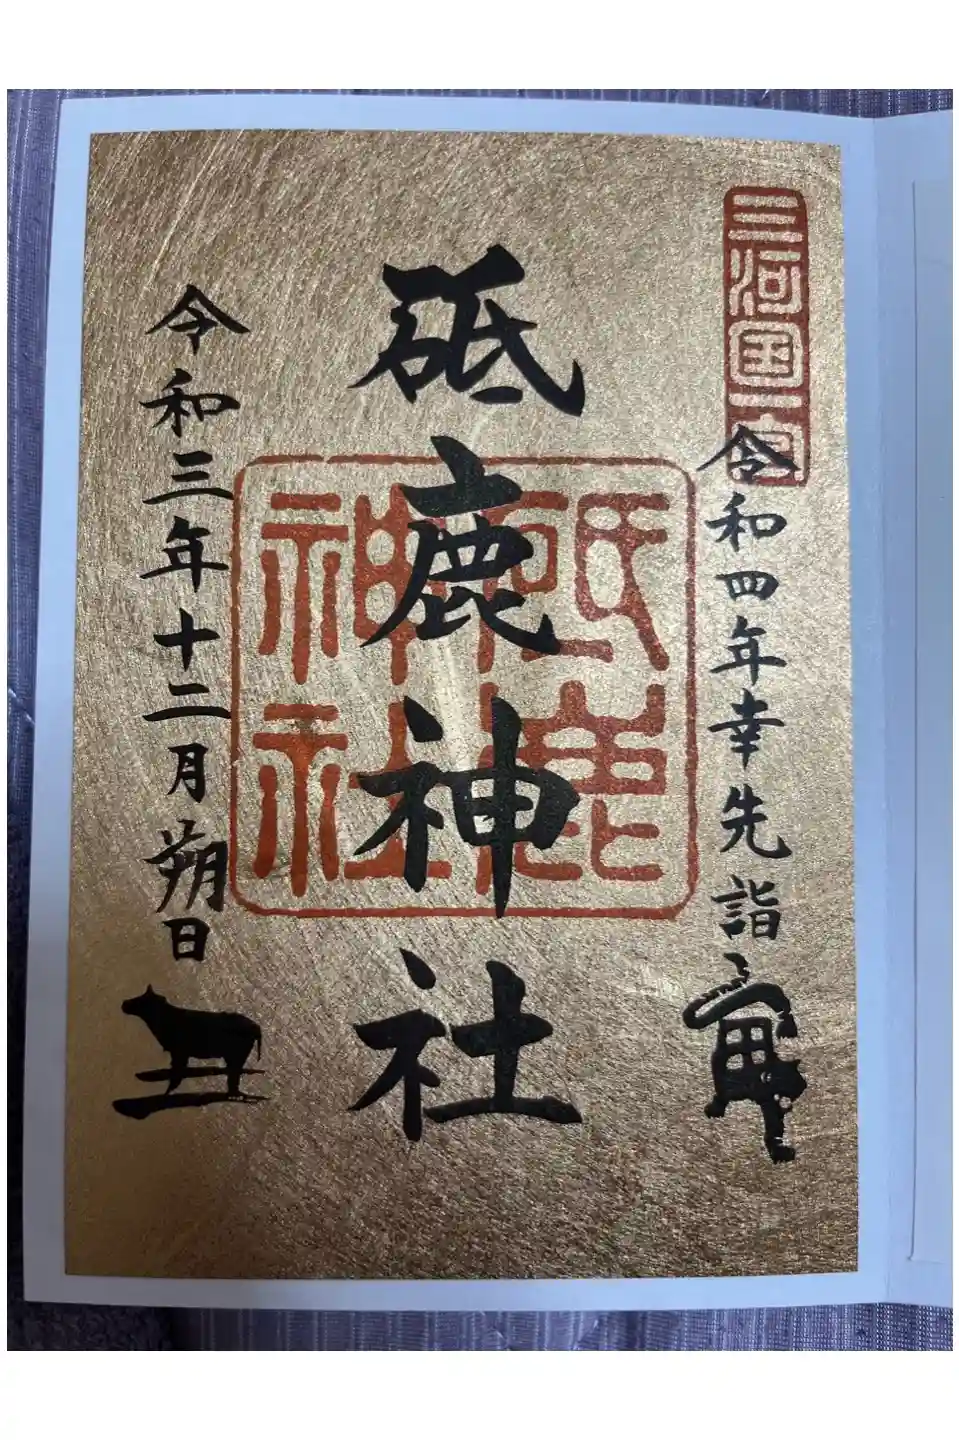 三河国一宮
令和四年幸先詣
砥鹿神社
砥鹿
神社
令和三年十二月朔日